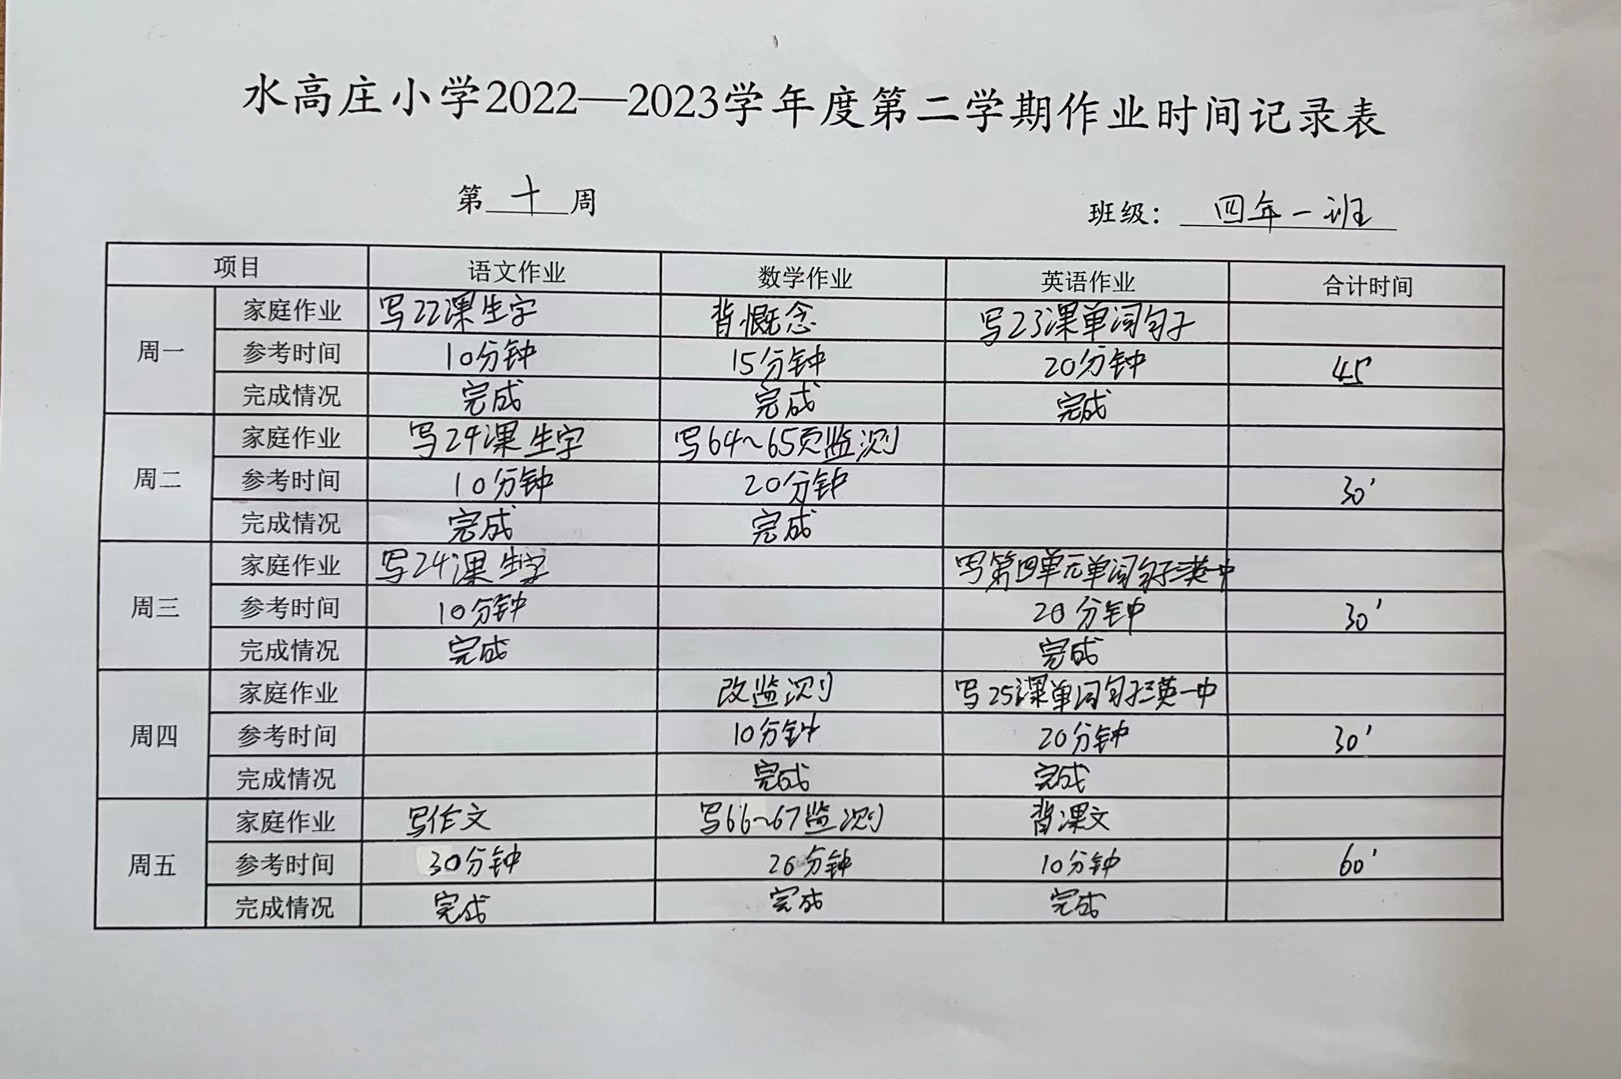 水高庄小学2022—2023学年度第二学期作业时间记录表
第 十 周 班级： 四年一班
项目 语文作业 数学作业 英语作业 合计时间
周一
家庭作业 写22课生字 背概念 写23课单词句子
参考时间 10分钟 15分钟 20分钟 45'
完成情况 完成 完成 完成
周二
家庭作业 写24课生字 写64~65页监测
参考时间 10分钟 20分钟 30'
完成情况 完成 完成
周三
家庭作业 写24课生字 写第四单元单词句子三英一中
参考时间 10分钟 20分钟 30'
完成情况 完成 完成
周四
家庭作业 改监测 写25课单词句子三英一中
参考时间 10分钟 20分钟 30'
完成情况 完成 完成
周五
家庭作业 写作文 写66~67监测 背课文
参考时间 30分钟 20分钟 10分钟 60'
完成情况 完成 完成 完成